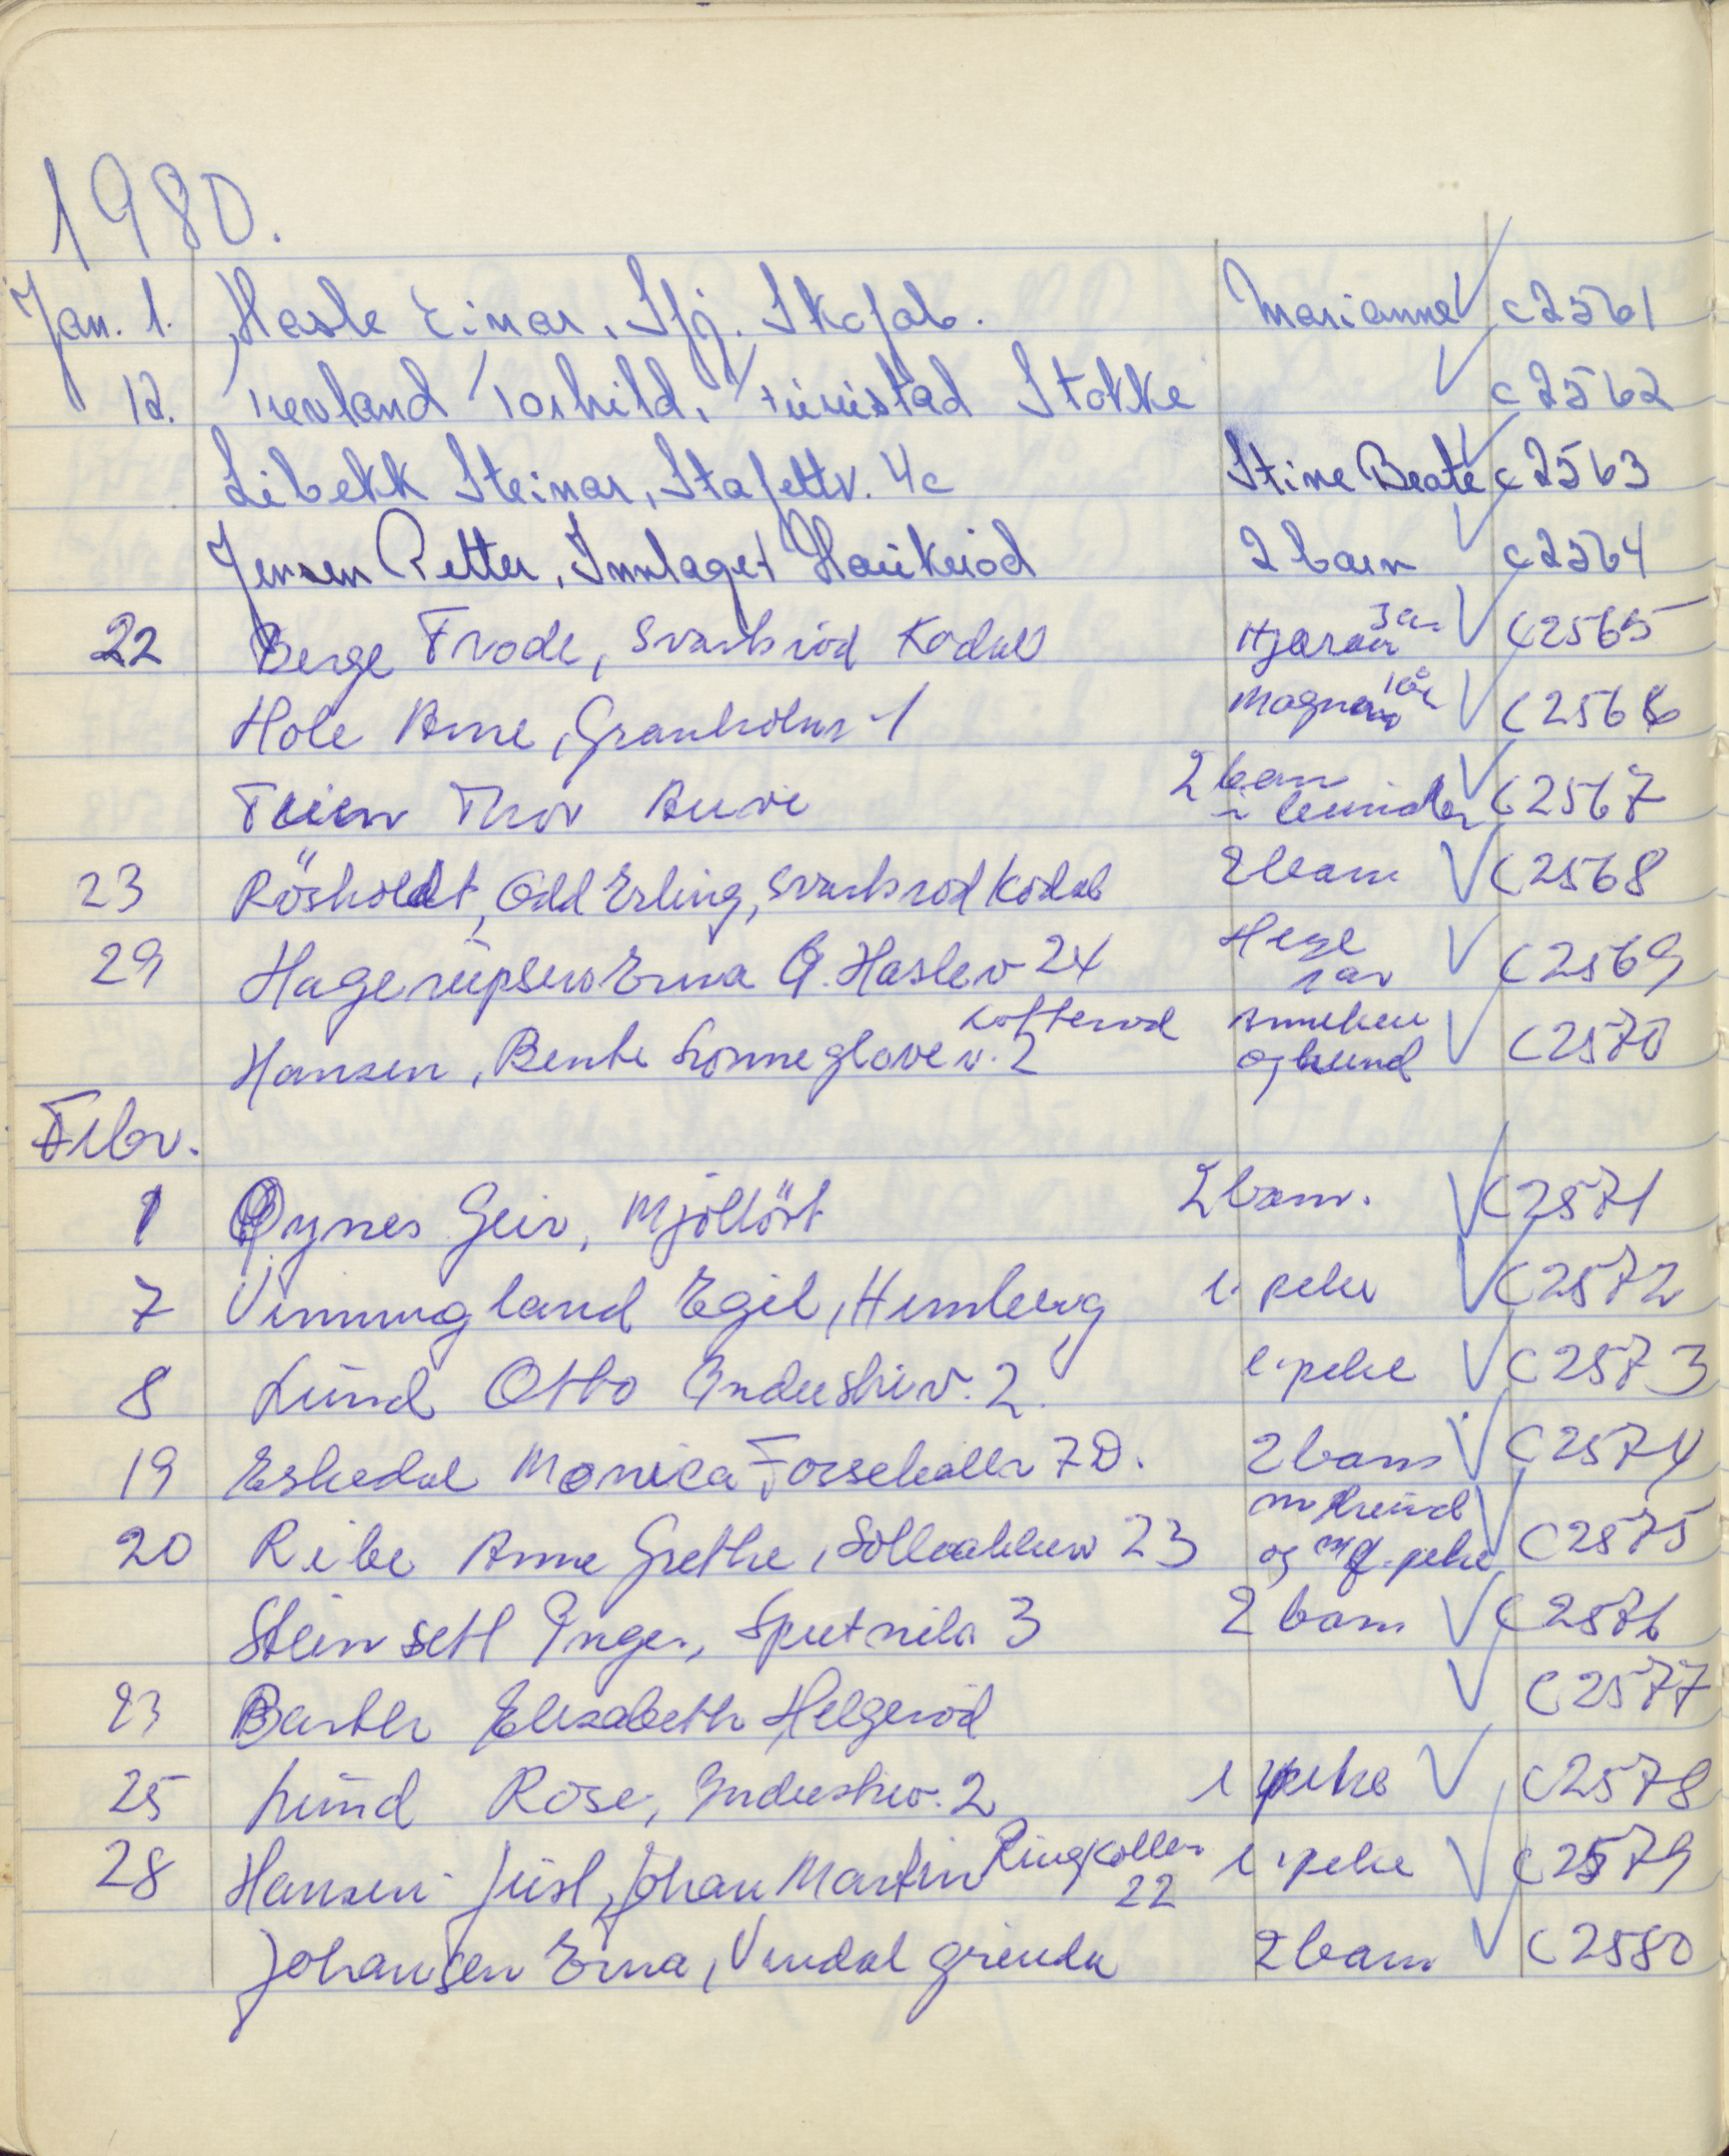 1980.
Jan. 1. Hasle Einar, Sfj. Skofab. Marianne ✓ C2561
12. Torhild, Stokke ✓ C2562
Libekk Steinar, Stafettv. 4c Stine Beate ✓ C2563
Jensen Petter, Innlaget Haukerød 2 barn ✓ C2564
22 Berge Frode, Svartsrød Kodal 3 år ✓ C2565
Hole Arne, Granholmv 1 Magnus ✓ C2566
Teien Thor Auve 2 barn ✓ C2567
23 Rösholdt, Odd Erling, Svartsrød Kodal 2 barn ✓ C2568
29 Hagerupsen Erna G. Haslev 24 Hege ✓ C2569
Hansen, Bente 2 Lofterød Anneken og hund ✓ C2570
Febr.
1 Oynes Geir, Mjöllöst 2 barn. ✓ C2571
7 Vinningland Egil, Himberg 1. pike ✓ C2572
8 Lund Otto Industriv. 2. 1. pike ✓ C2573
19 Eskedal Monica 7D. 2 barn ✓ C2574
20 Ribe Anne Grethe, Sollbakken 23 m hund og pike ✓ C2575
Steinsett Inger, Sputnikv 3 2 barn ✓ C2576
23 Elisabeth Helgerød ✓ C2577
25 Lund Rose, Industriv. 2 1 pike ✓ C2578
28 Hansen Just, Johan Martin Ringkollen 22 1 pike ✓ C2579
Johansen Erna, Vindal grenda 2 barn ✓ C2580